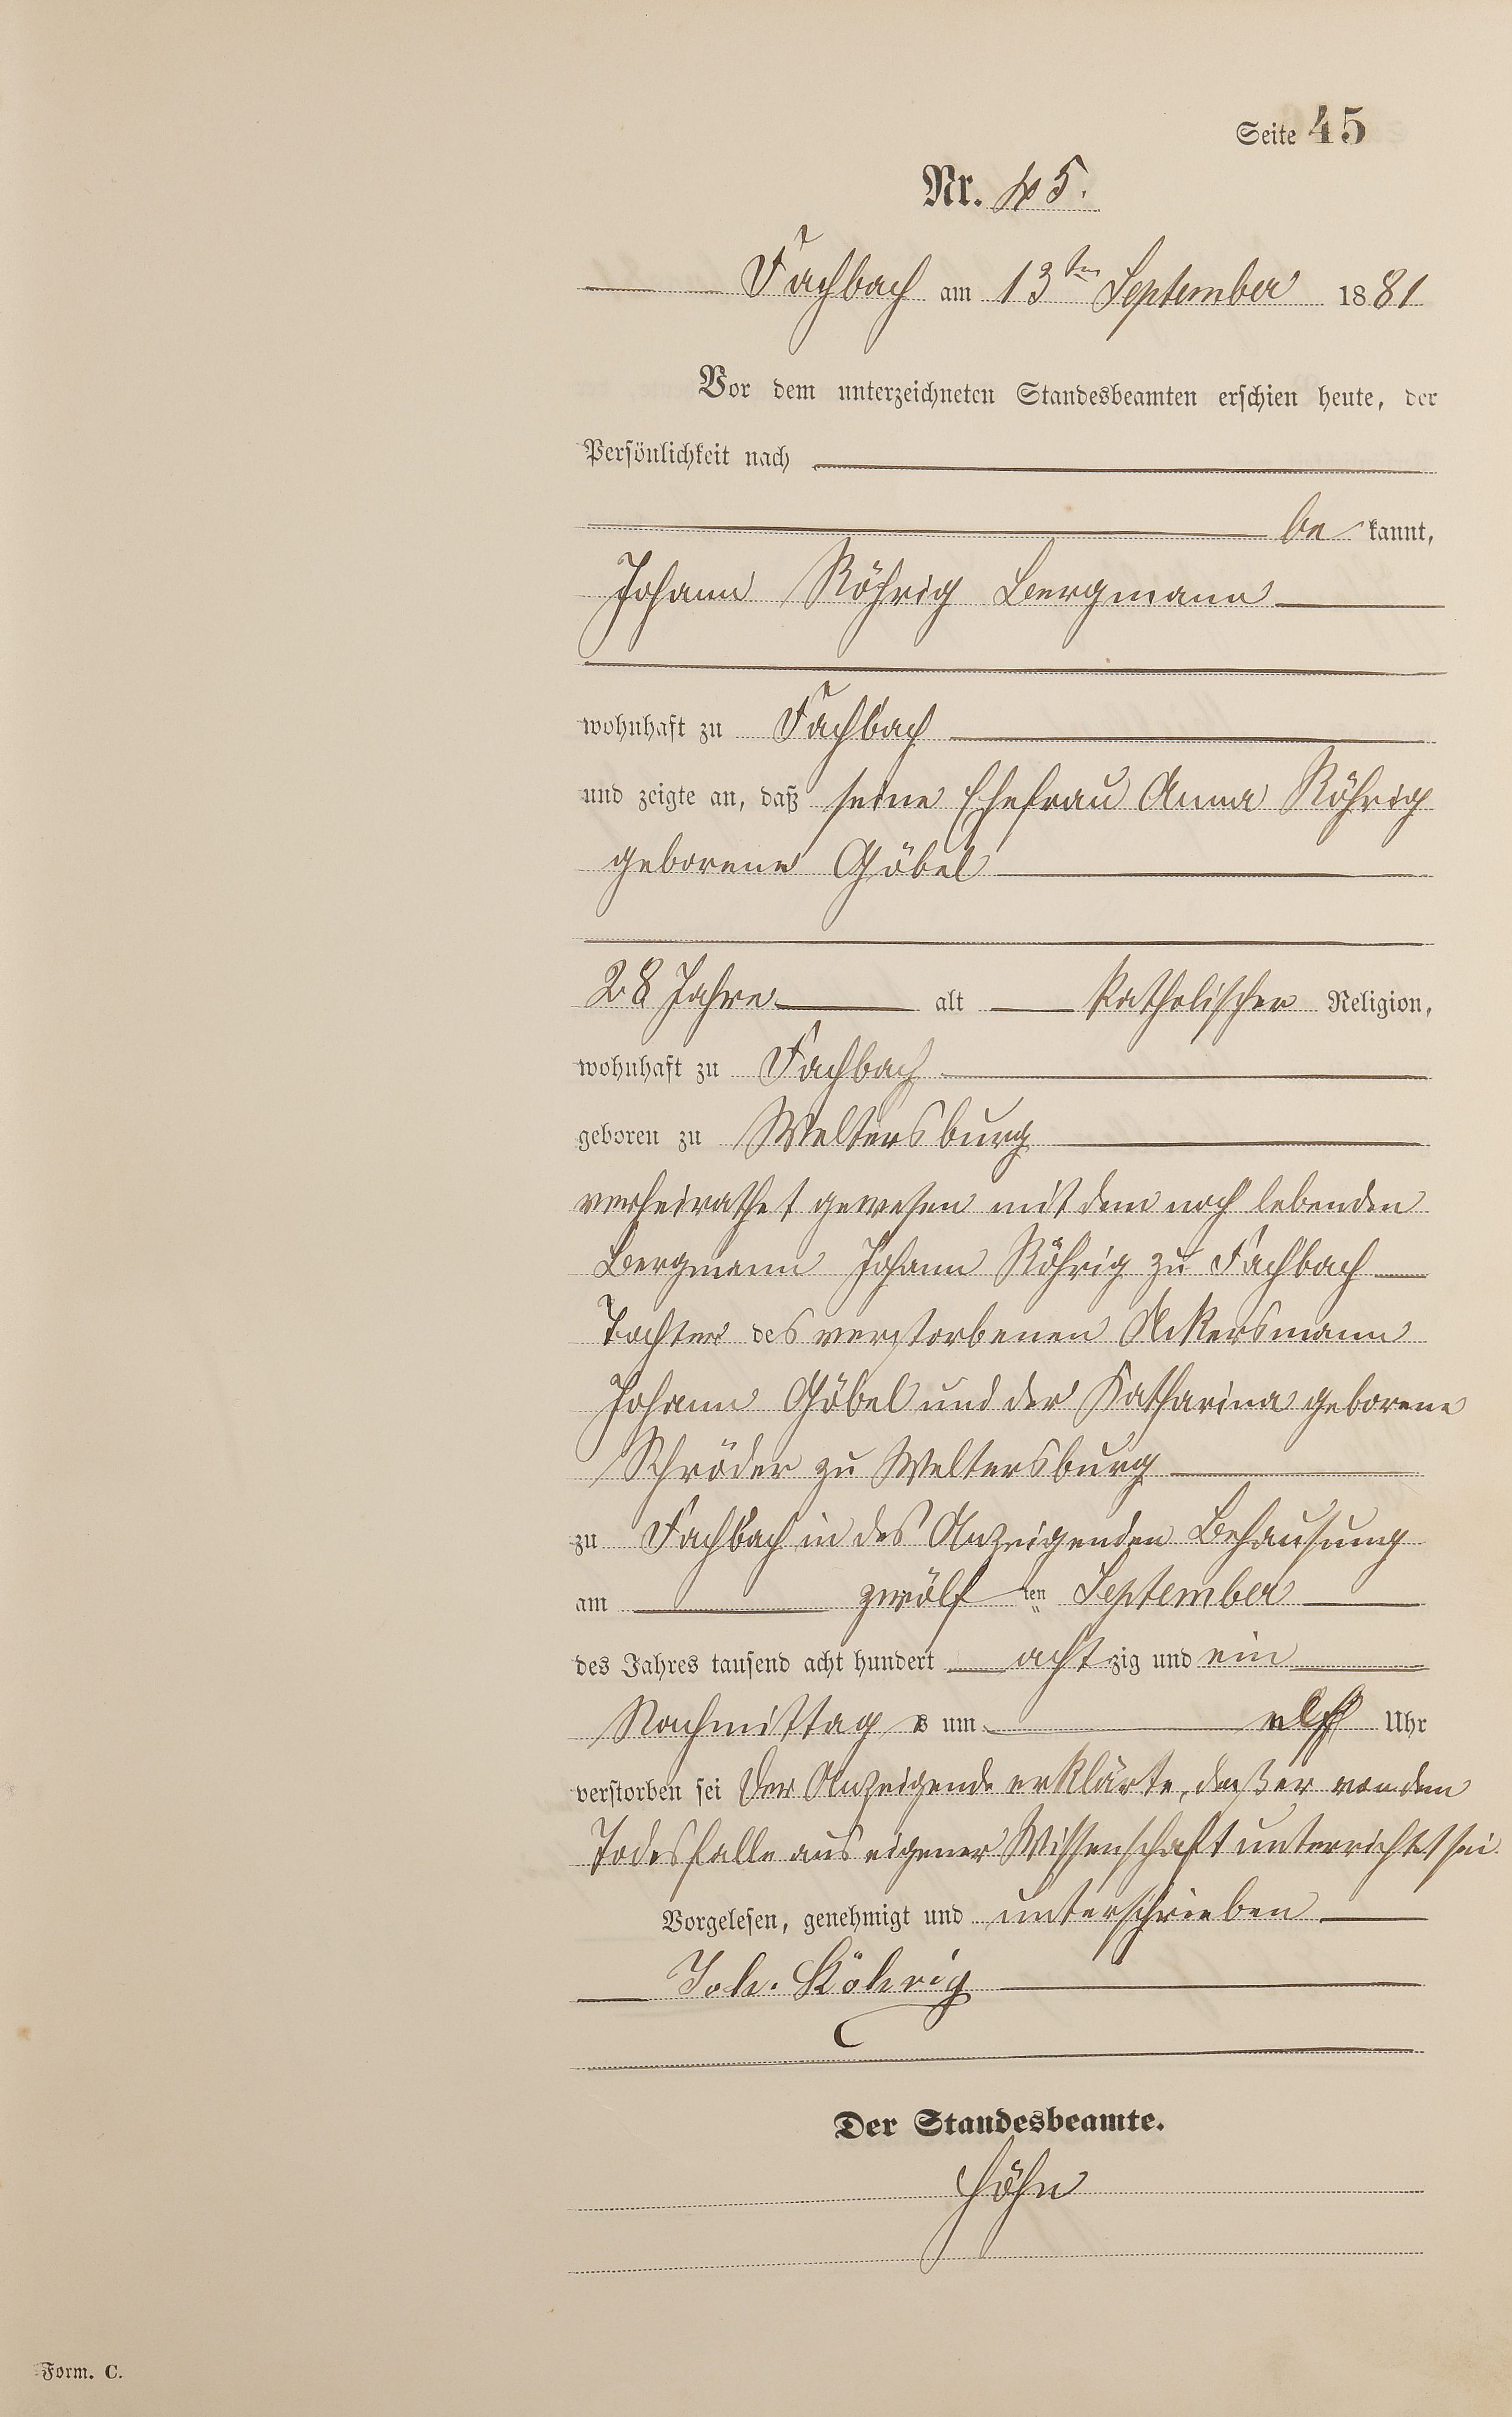 Seite 45
Nr. 45.
Fachbach am 13ten September 1881
Vor dem unterzeichneten Standesbeamten erschien heute, der
Persönlichkeit nach
be kannt,
Johann Röhrig Bergmann
wohnhaft zu Fachbach
und zeigte an, daß seine Ehefrau Anna Röhrig
geborene Göbel
28 Jahre alt katholischer Religion,
wohnhaft zu Fachbach
geboren zu Weltersburg
verheirathet gewesen mit dem noch lebenden
Bergmann Johann Röhrig zu Fachbach
Tochter des verstorbenen Ackersmann
Johann Göbel und der Katharina geborene
Schröder zu Weltersburg
zu Fachbach in des Anzeigenden Behausung
am zwölf ten September
des Jahres tausend acht hundert achtzig und ein
Nachmittag s um elf Uhr
verstorben sei Der Anzeigende erklärte, daß er von dem
Todesfalle aus eigener Wissenschaft unterrichtet sei.
Vorgelesen, genehmigt und unterschrieben
Joh. Röhrig
Der Standesbeamte.
Höhn
Form. C.